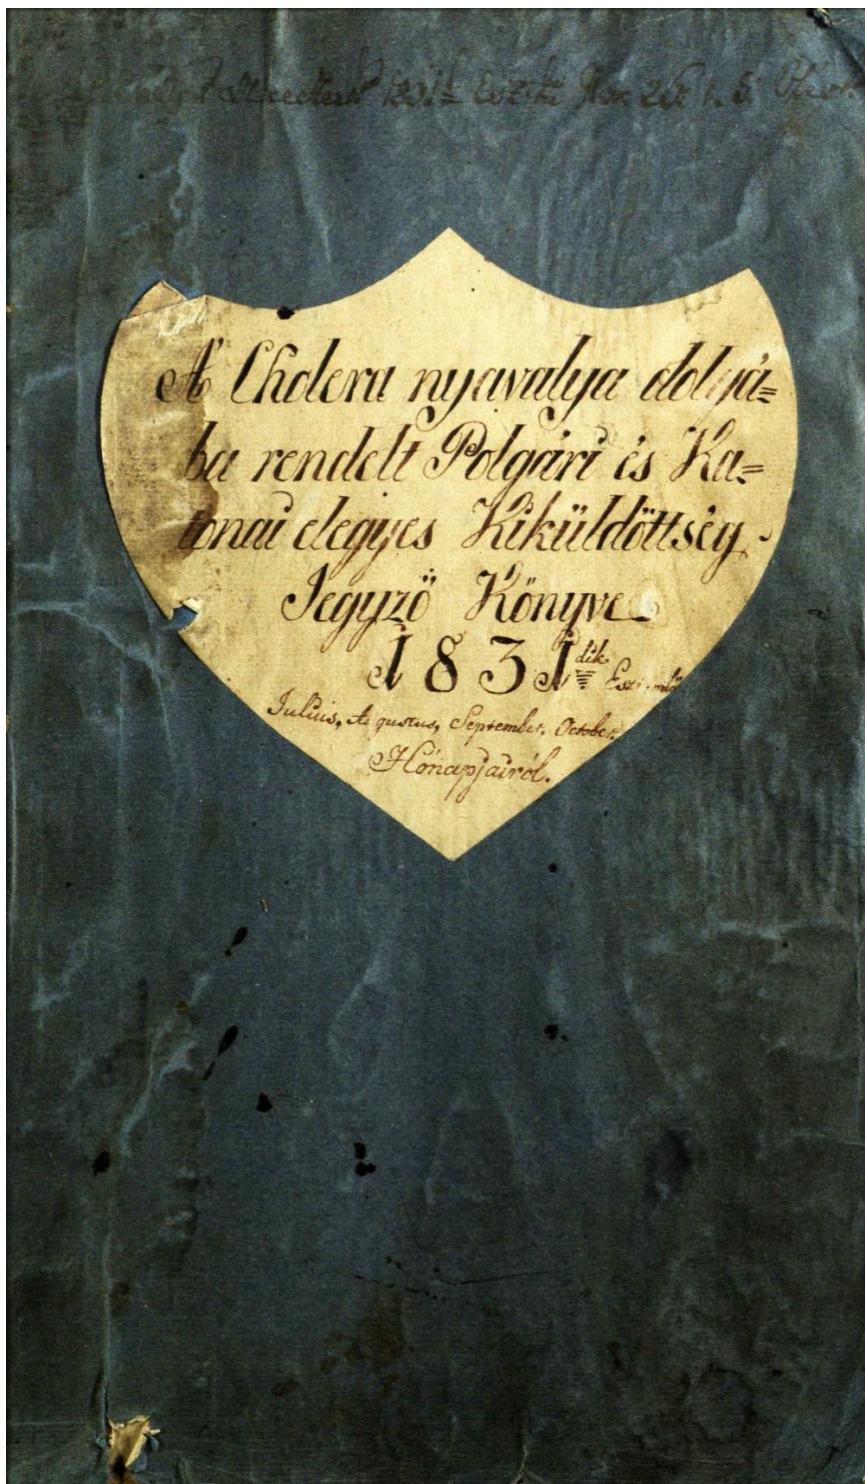 1831 Eszt.
A' Cholera nyavalya dolgá=
ba rendelt Polgári és Ka=
tonai elegyes Kiküldöttség
Jegyző Könyve
1831dik
Julius, Augustus, September, October,
Hónapjairól.